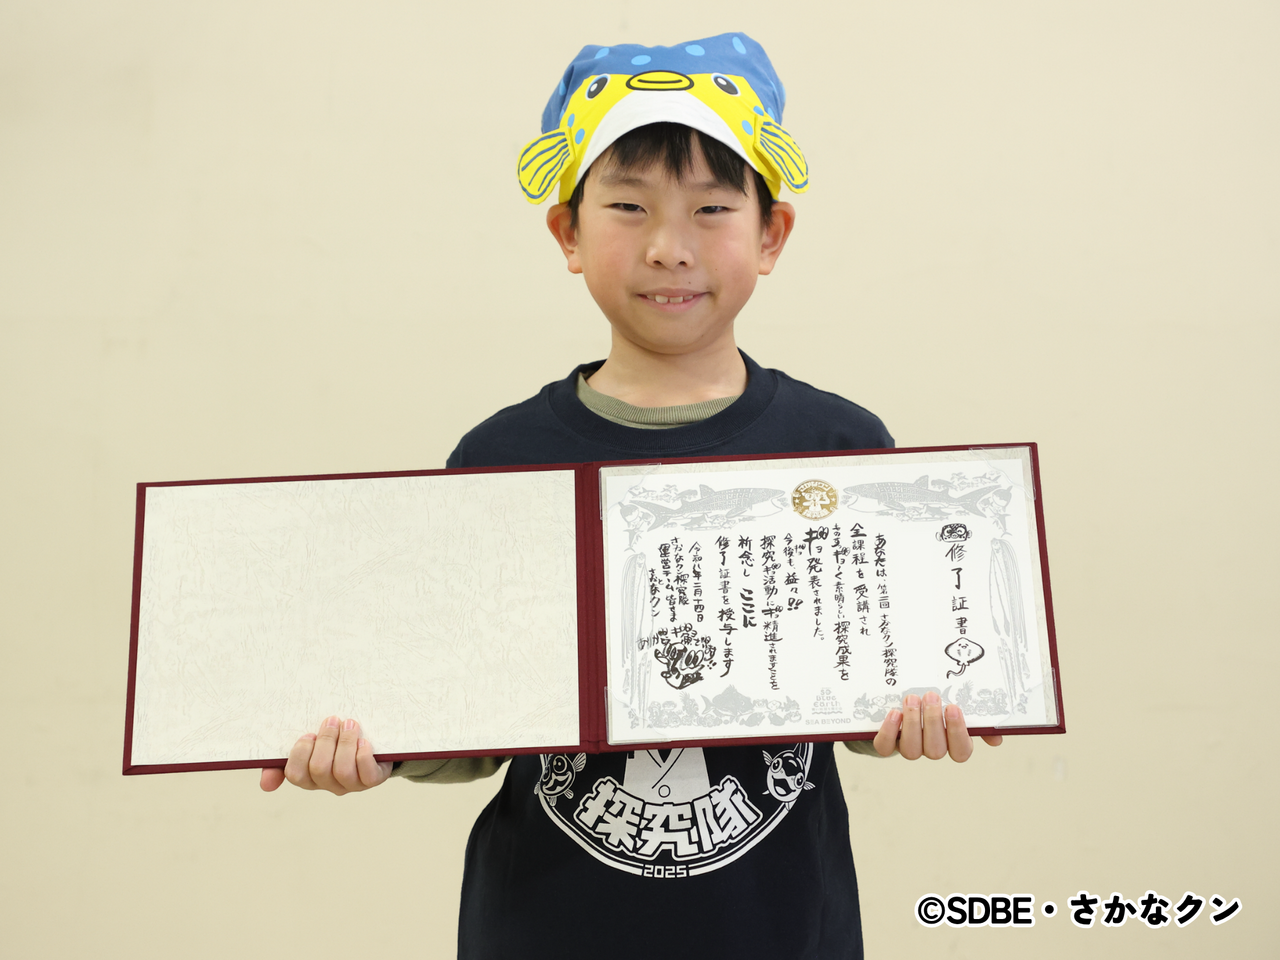 修了証書
あなたは、第二回 さかなクン探究隊の
全課程を 受講され
さの　ギョく素晴らしい探究成果を
ギョ発表されました。
今後も、益々!!
探究ギョ活動にギョ精進されますことを
祈念し ここに
修了証書を授与します
令和八年二月十四日
さかなクン探究隊
運営チーム 皆さま
と
さかなクン
SEA BEYOND
探究隊
2025
©SDBE・さかなクン